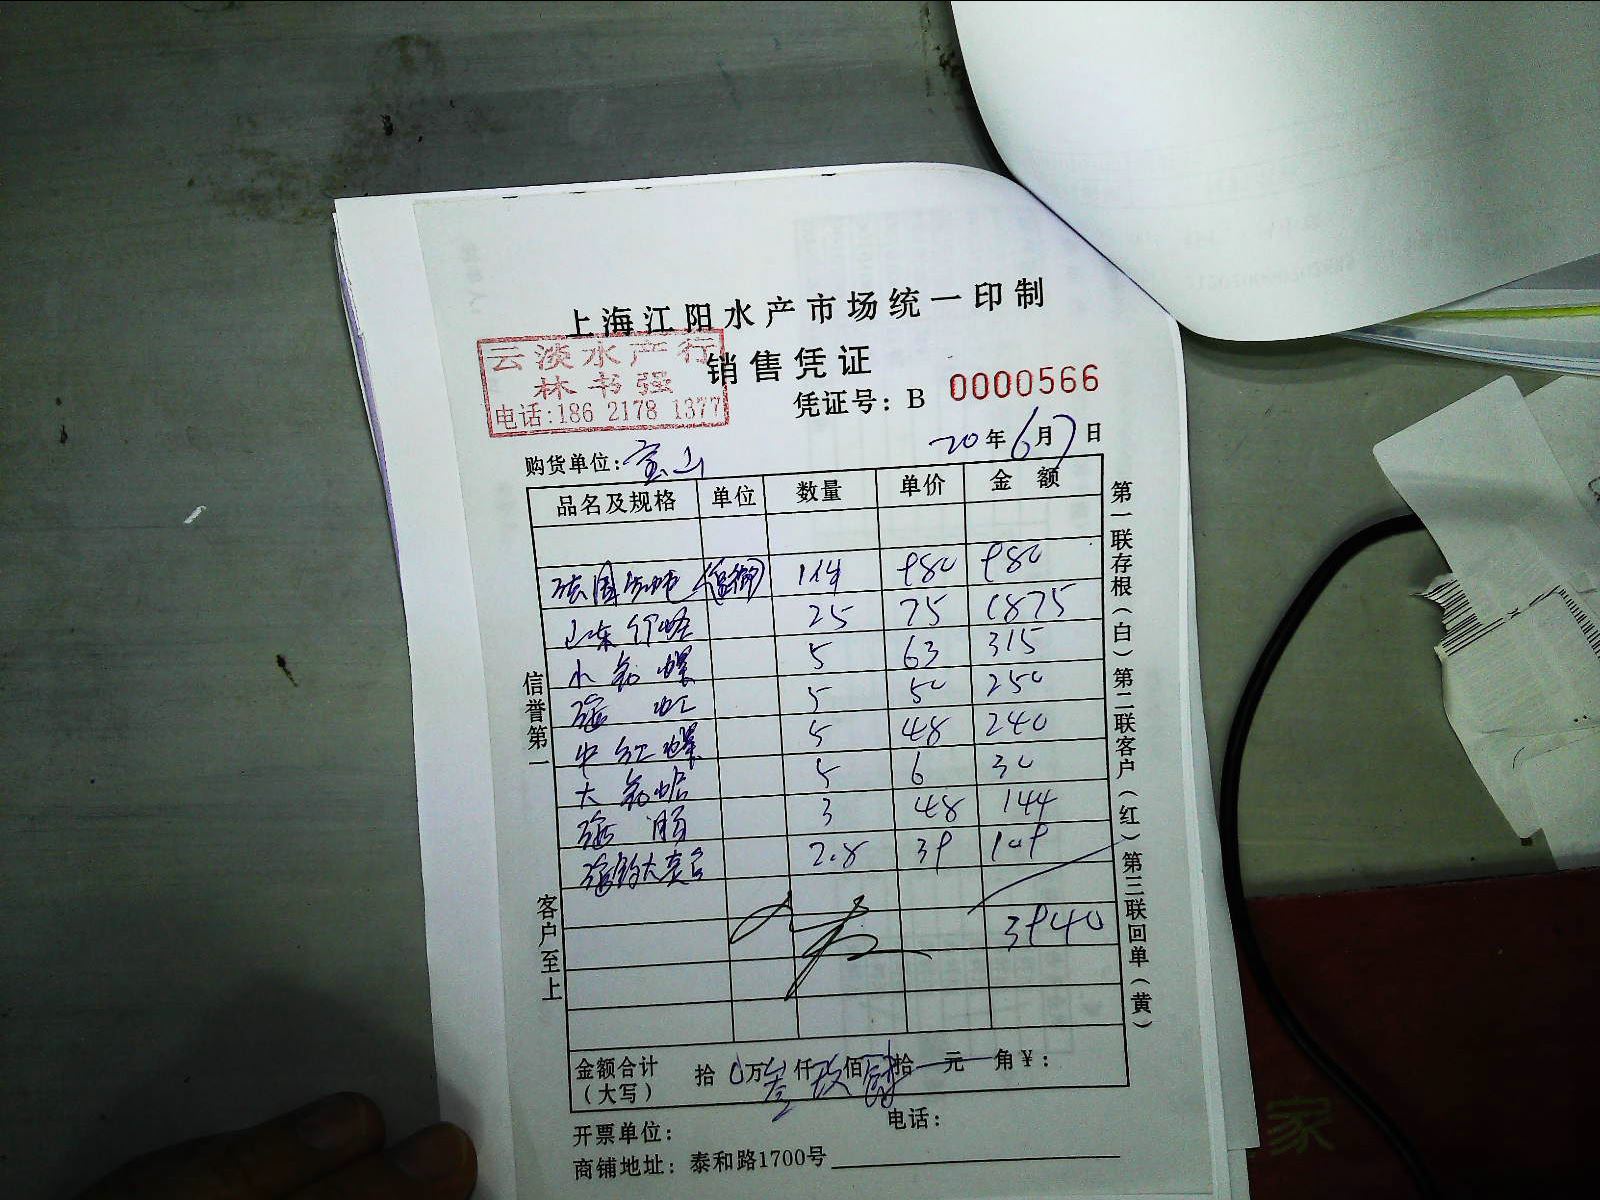 上海江阳水产市场统一印制
云淡水产行
林书强
电话:186 2178 1377
销售凭证
凭证号: B 0000566
20年6月7日
购货单位:宝山
品名及规格 单位 数量 单价 金额
法国 1件 980 980
山东 25 75 1875
小 螺 5 63 315
海虹 5 50 250
中红螺 5 48 240
大 蛤 5 6 30
海肠 3 48 144
海 大 2.8 39 109
3940
金额合计(大写) 拾 0万叁仟玖佰肆拾 元 角¥:
开票单位: 电话:
商铺地址: 泰和路1700号
信誉第一
客户至上
第一联存根(白)第二联客户(红)第三联回单(黄)
家